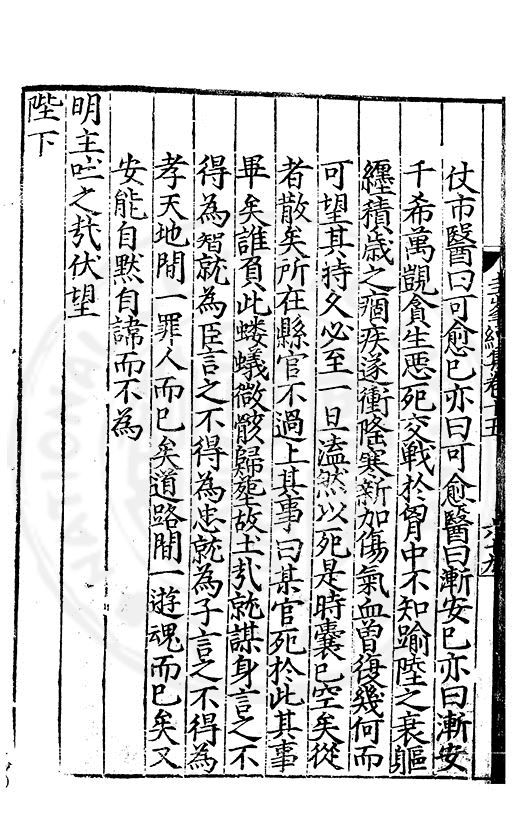 仗市醫曰可愈已亦曰可愈醫曰漸安已亦曰漸安
千希萬覬貪生惡死交戰於胷中不知踰陸之衰軀
纏積歲之痼疾遂衝隆寒新加傷氣血曽復幾何而
可望其持久必至一旦溘然以死是時囊已空矣從
者散矣所在縣官不過上其事曰某官死於此其事
畢矣誰負此螻蟻微骸歸塟故土㢤就謀身言之不
得為智就為臣言之不得為忠就為子言之不得為
孝天地間一罪人而已矣道路間一遊魂而已矣又
安能自黙自諱而不為
明主吐之㢤伏望
陛下